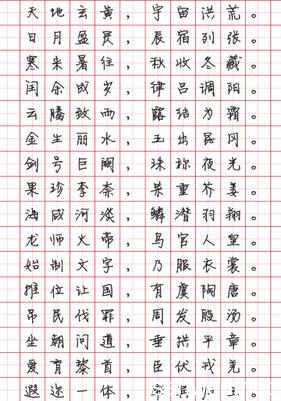 天地玄黄，宇宙洪荒。
日月盈昃，辰宿列张。
寒来暑往，秋收冬藏。
闰余成岁，律吕调阳。
云腾致雨，露结为霜。
金生丽水，玉出昆冈。
剑号巨阙，珠称夜光。
果珍李柰，菜重芥姜。
海咸河淡，鳞潜羽翔。
龙师火帝，鸟官人皇。
始制文字，乃服衣裳。
推位让国，有虞陶唐。
吊民伐罪，周发殷汤。
坐朝问道，垂拱平章。
爱育黎首，臣伏戎羌。
遐迩一体，